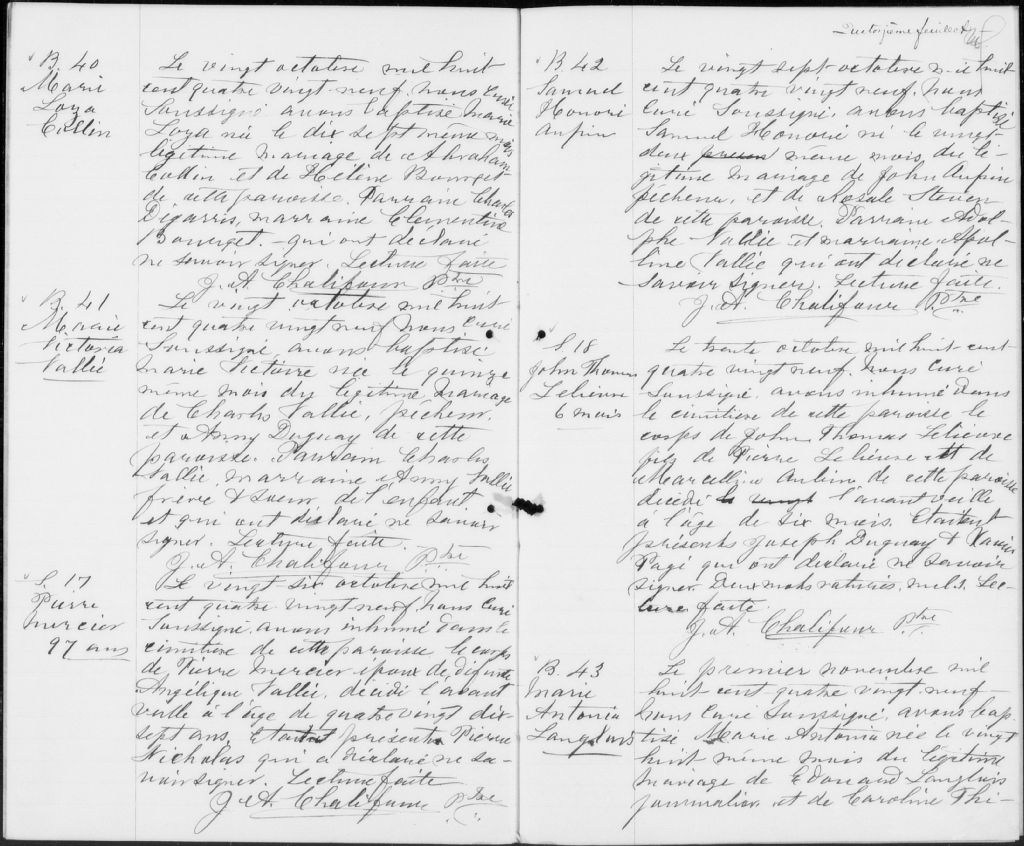 B. 40
Marie
Loza
Collin
Le vingt octobre mil huit
cent quatre vingt neuf, nous curé
Soussigné avons baptisé Marie
Loza née le dix sept même mois
légitime mariage de Abraham
Collin et de Hélène Bourget
de cette paroisse. Parrain Charles
Degarris, marraine Clementine
Bourget. - qui ont declaré
ne savoir signer. Lecture faite
J. A. Chalifour Ptre
B. 41
Marie
Victoria
Vallée
Le vingt octobre mil huit
cent quatre vingt neuf nous curé
Soussigné avons baptisé
Marie Victoire née le quinze
même mois du légitime mariage
de Charles Vallée, pécheur
et Anny Duguay de cette
paroisse. Parrain Charles
Vallée, marraine Anny Vallée
frère & soeur de l'enfant
et qui ont déclaré ne savoir
signer. Lecture faite.
J. A. Chalifour Ptre
S. 17
Pierre
Mercier
97 ans
Le vingt six octobre mil huit
cent quatre vingt neuf, nous curé
Soussigné, avons inhumé dans le
cimitière de cette paroisse le corps
de Pierre Mercier époux de défunte
Angélique Vallée, décédé l'avant
veille à l'âge de quatre vingt dix-
sept ans, Etaient présents Pierre
Nicholas qui a déclaré ne sa-
voir signer. Lecture faite
J. A. Chalifour Ptre
feuillet
B. 42
Samuel
Honoré
Aupin
Le vingt sept octobre mil huit
cent quatre vingt neuf, nous
curé Soussigné, avons baptisé
Samuel Honoré né le vingt
deux même mois, du lé-
gitime mariage de John Aupin
pécheur, et de Rosale Steven
de cette paroisse. Parrain Adol-
phe Vallée et marraine Apol-
line Vallée qui ont déclaré ne
savoir signer. Lecture faite.
J. A. Chalifour Ptre
S. 18
John Thomas
Lelievre
6 mois
Le trente octobre mil huit cent
quatre vingt neuf, nous curé
Soussigné, avons inhumé dans
le cimitière de cette paroisse le
corps de John Thomas Lelievre
fils de Pierre Lelievre et de
Marcelline Aubin de cette paroisse
décédé le vingt l'avant veille
à l'âge de six mois. Etaient
présents Joseph Duguay &
Pagé qui ont déclaré ne savoir
signer. Deux mots raturés, nuls. Lec-
ture faite.
J. A. Chalifour Ptre
B. 43
Marie
Antonia
Langlois
Le premier novembre mil
huit cent quatre vingt neuf
nous curé Soussigné, avons bap-
tisé Marie Antonia née le vingt
huit même mois du légitime
mariage de Edouard Langlois
journalier et de Caroline Thi-